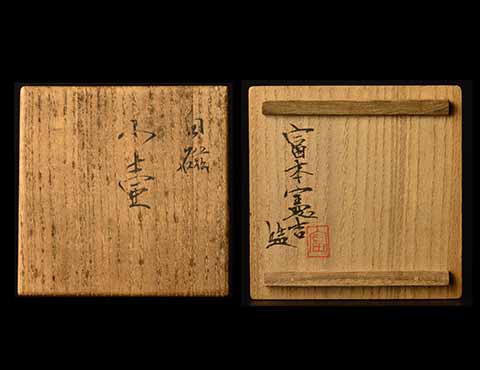 白磁
小壷
富本憲吉
造
富